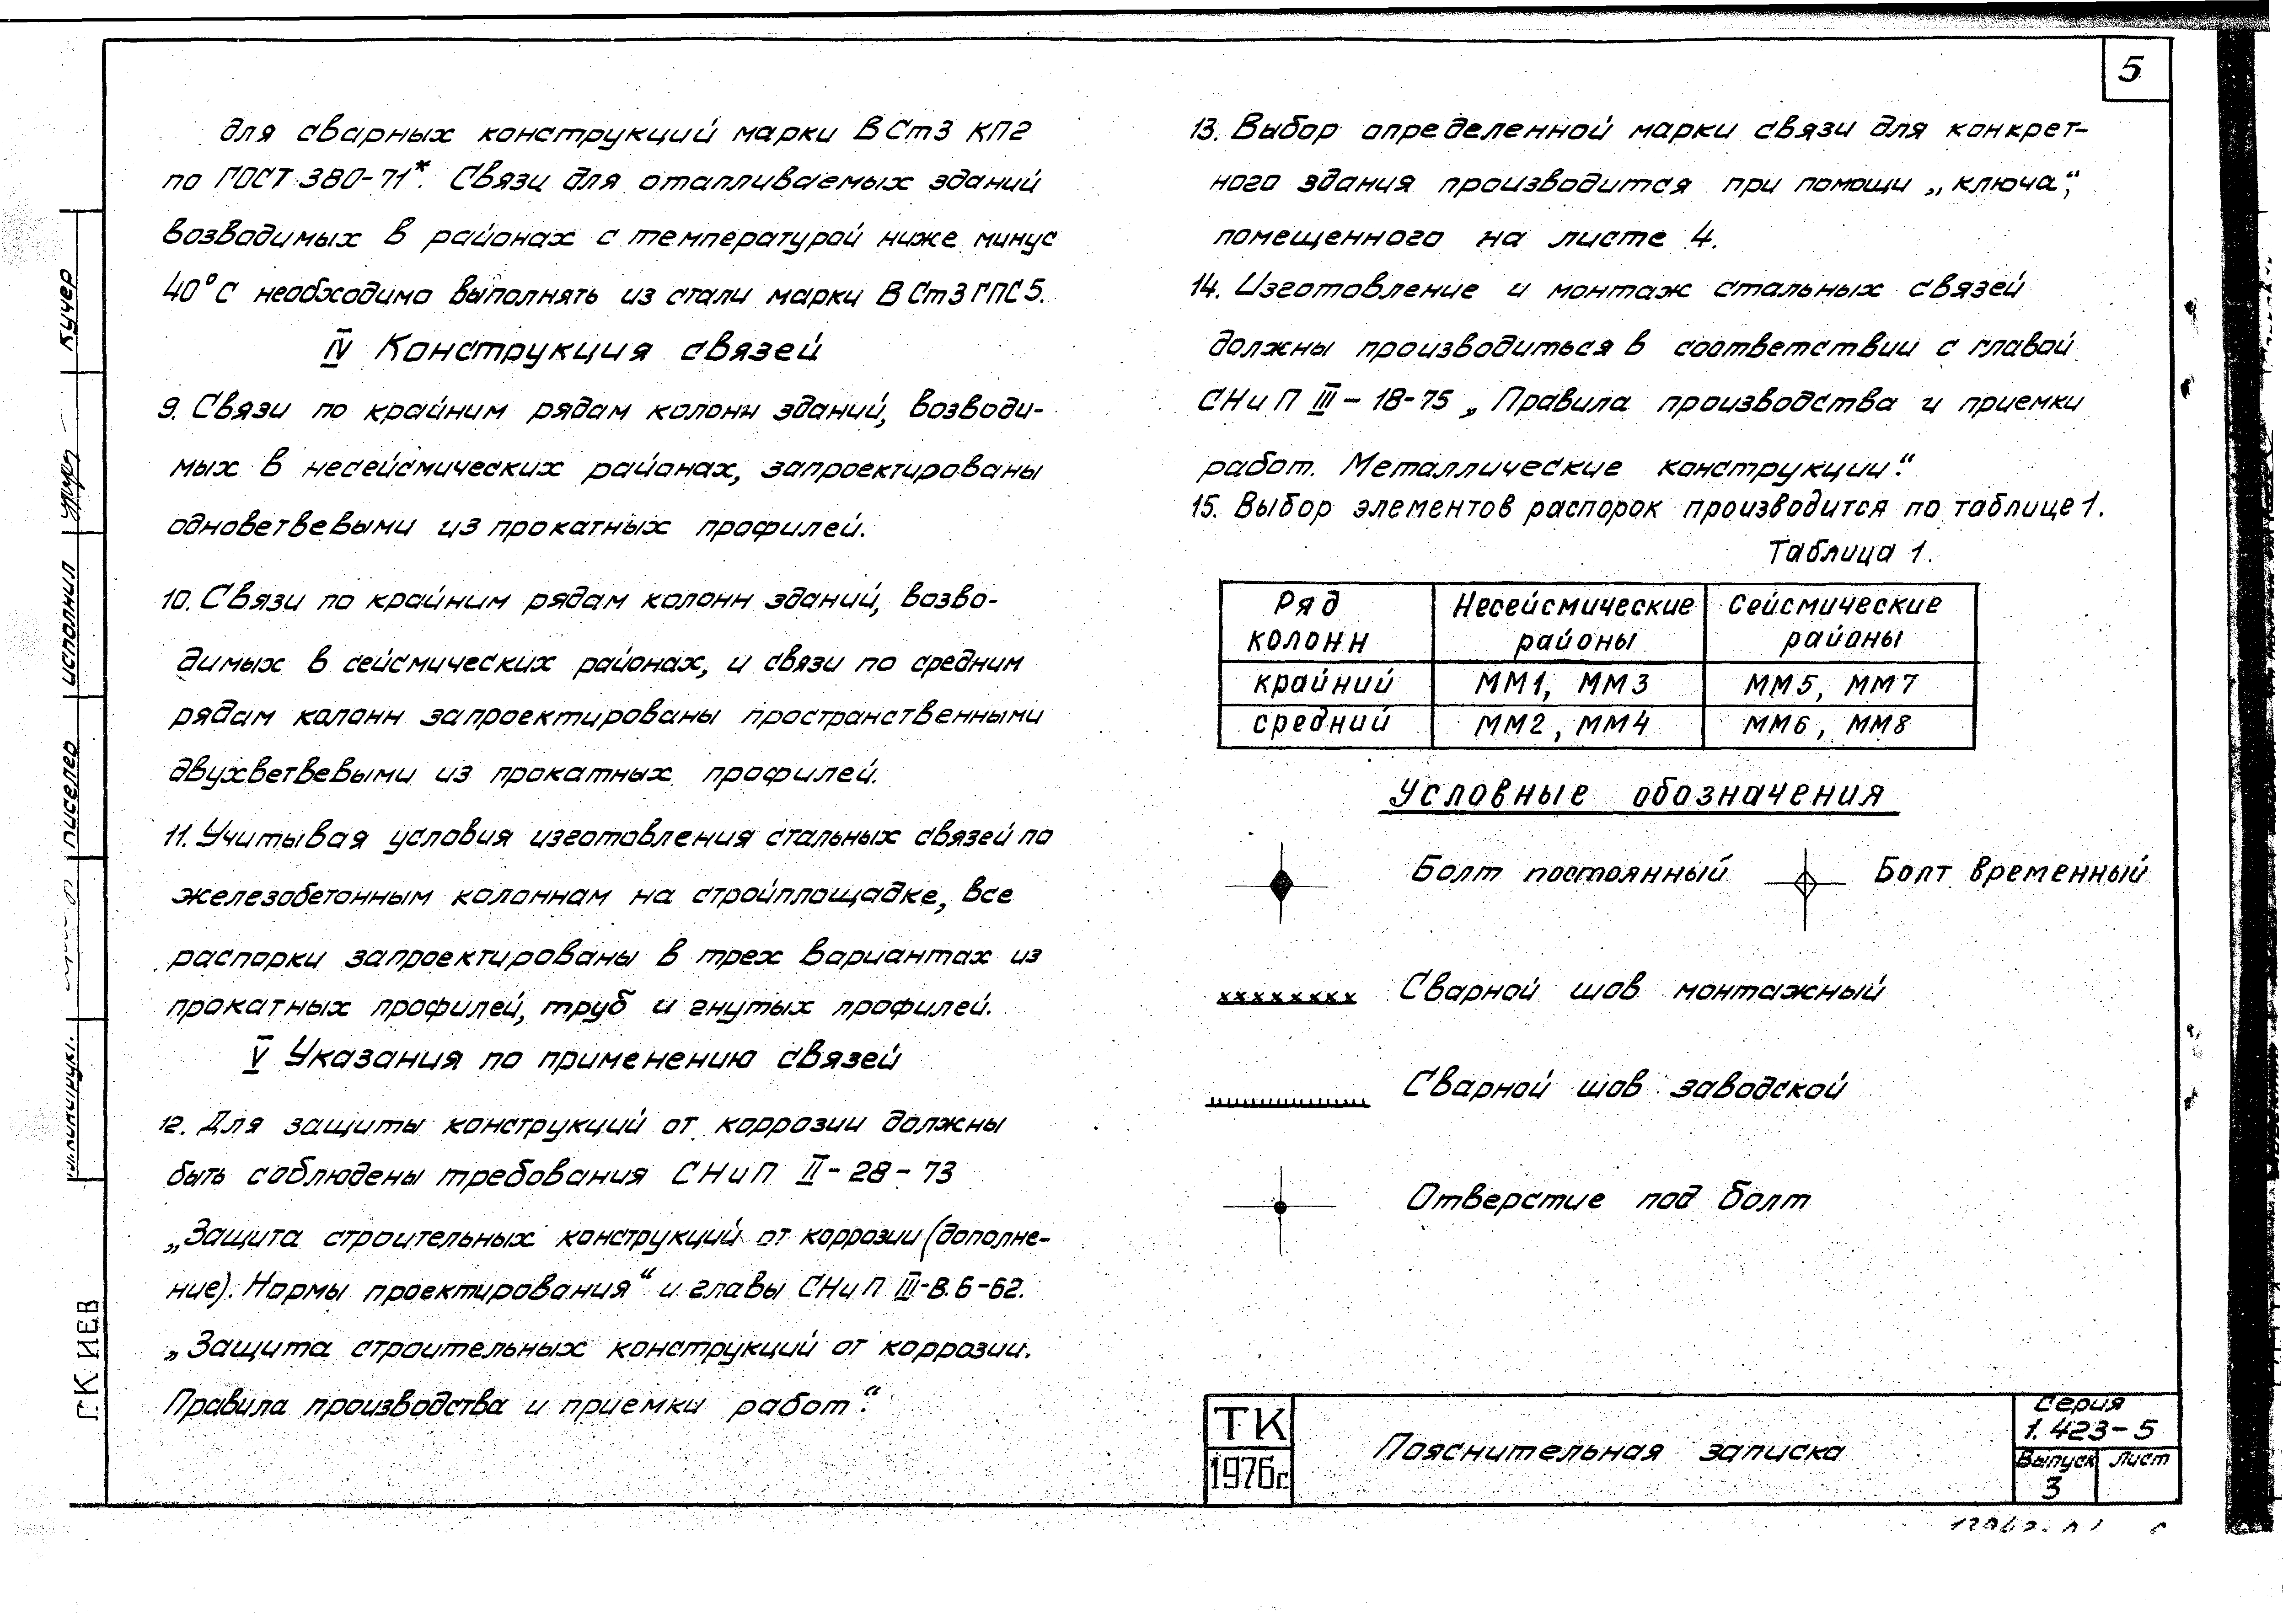 5
для сварных конструкций марки ВСт3 КП2
по ГОСТ 380-71*. Связи для отапливаемых зданий
возводимых в районах с температурой ниже минус
40°С необходимо выполнять из стали марки ВСт3ГПС5.
IV Конструкция связей
9. Связи по крайним рядам колонн зданий, возводи-
мых в несейсмических районах, запроектированы
одноветвевыми из прокатных профилей.
10. Связи по крайним рядам колонн зданий, возво-
димых в сейсмических районах, и связи по средним
рядам колонн запроектированы пространственными
двухветвевыми из прокатных профилей.
11. Учитывая условия изготовления стальных связей по
железобетонным колоннам на стройплощадке, все
распорки запроектированы в трех вариантах из
прокатных профилей, труб и гнутых профилей.
V Указания по применению связей
12. Для защиты конструкций от коррозии должны
быть соблюдены требования СНиП II-28-73
„Защита строительных конструкций от коррозии (дополне-
ние). Нормы проектирования“ и главы СНиП III-В.6-62.
„Защита строительных конструкций от коррозии.
Правила производства и приемки работ“.
13. Выбор определенной марки связи для конкрет-
ного здания производится при помощи „ключа“,
помещенного на листе 4.
14. Изготовление и монтаж стальных связей
должны производиться в соответствии с главой
СНиП III-18-75 „Правила производства и приемки
работ. Металлические конструкции“.
15. Выбор элементов распорок производится по таблице 1.
Таблица 1.
Ряд колонн Несейсмические районы Сейсмические районы
крайний ММ1, ММ3 ММ5, ММ7
средний ММ2, ММ4 ММ6, ММ8
Условные обозначения
Болт постоянный Болт временный
Сварной шов монтажный
Сварной шов заводской
Отверстие под болт
ТК
1976г
Пояснительная записка
Серия
1.423-5
Выпуск Лист
3
Кучер
исполнил
Писелер
Г. КИЕВ